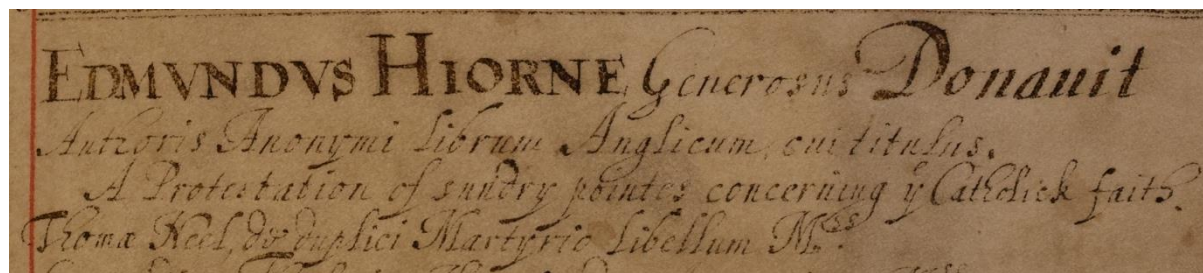 EDMVNDVS HIORNE Generosus Donauit
Authoris Anonymi librum Anglicum, cui titulus.
A Protestation of sundry pointes concerning ye Catholick faith.
Thomæ Neel, de duplici Martyrio libellum M.SS.